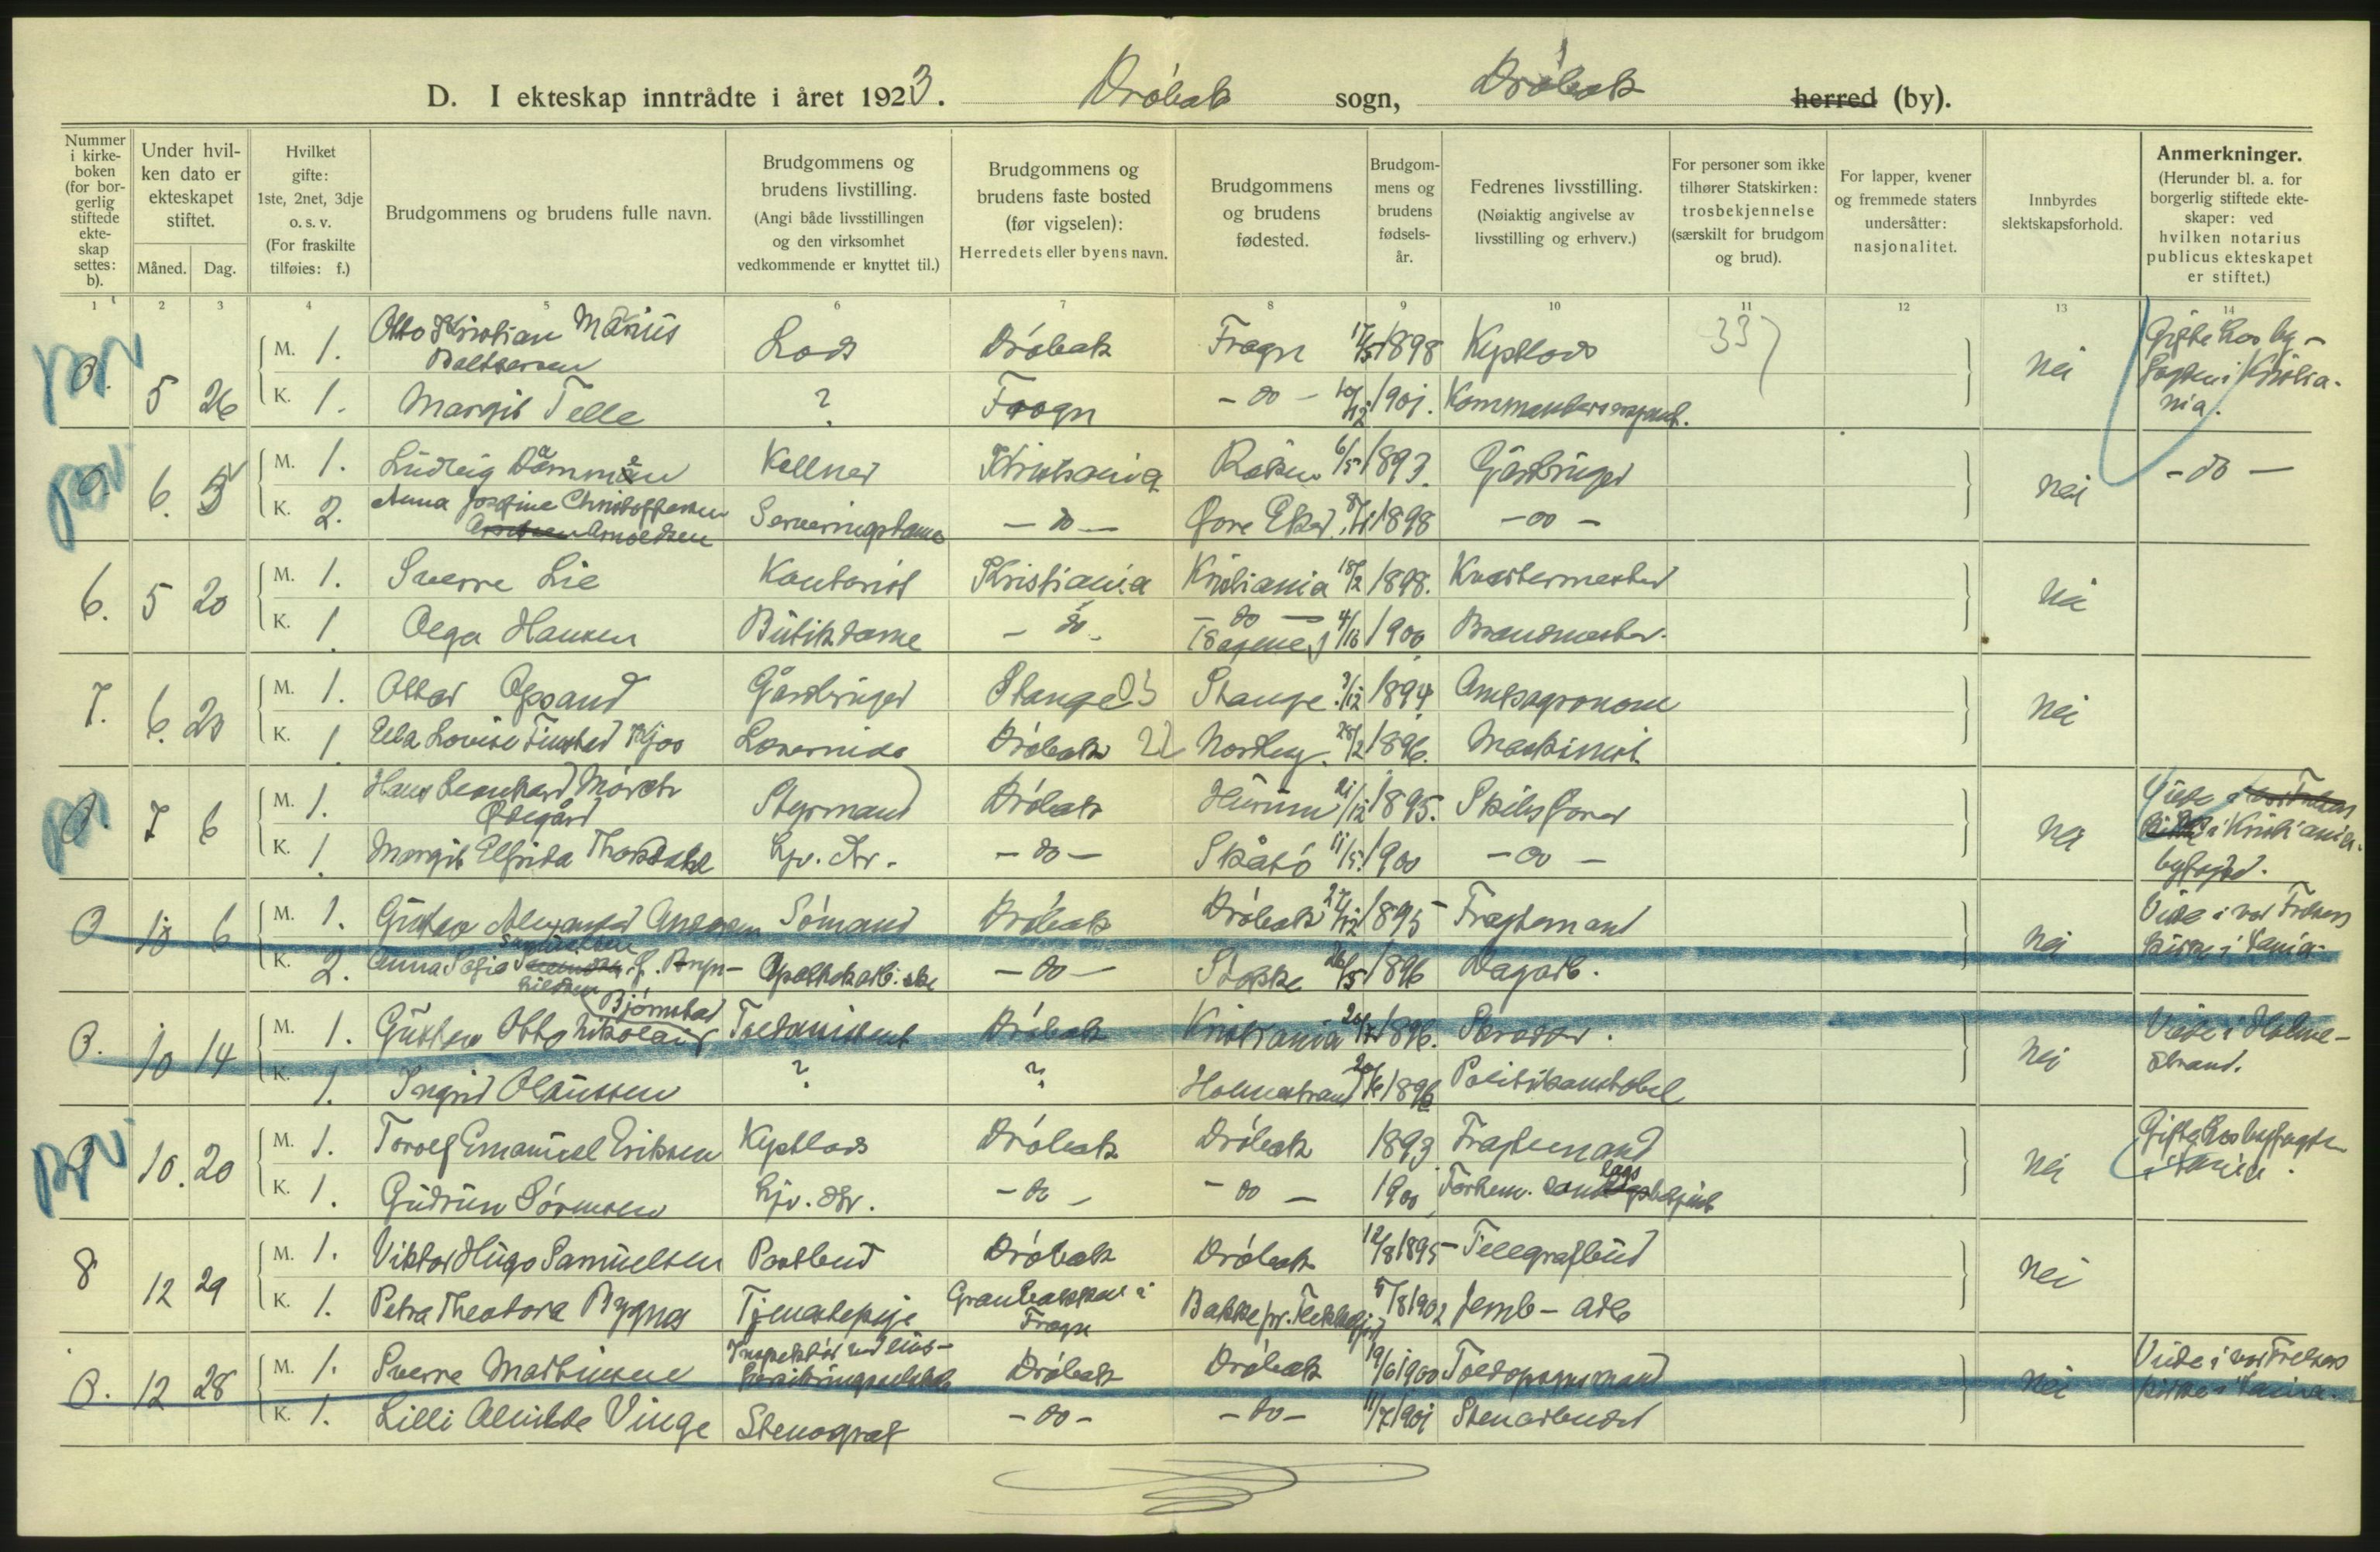 D. I ekteskap inntrådte i året 1923. Drøbak sogn, Drøbak herred (by).
Nummer i kirkeboken (for borgerlig stiftede ekteskap settes: b).
Under hvilken dato er ekteskapet stiftet.
Måned. Dag.
Hvilket gifte: 1ste, 2net, 3dje o. s. v. (For fraskilte tilføies: f.)
Brudgommens og brudens fulle navn.
Brudgommens og brudens livstilling. (Angi både livsstillingen og den virksomhet vedkommende er knyttet til.)
Brudgommens og brudens faste bosted (før vigselen): Herredets eller byens navn.
Brudgommens og brudens fødested.
Brudgommens og brudens fødselsår.
Fedrenes livsstilling. (Nøiaktig angivelse av livsstilling og erhverv.)
For personer som ikke tilhører Statskirken: trosbekjennelse (særskilt for brudgom og brud).
For lapper, kvener og fremmede staters undersåtter: nasjonalitet.
Innbyrdes slektskapsforhold.
Anmerkninger. (Herunder bl. a. for borgerlig stiftede ekteskaper: ved hvilken notarius publicus ekteskapet er stiftet.)
1 2 3 4 5 6 7 8 9 10 11 12 13 14
5 26 M. 1. Otto Kristian Marius Balthersen Lods Drøbak Frogn 17/5 1898 Kystlods 33 Nei Gifte hos byfogden i Kristiania.
K. 1. Margit Telle ? Frogn - do - 10/12 1901.
6. 5 M. 1. Ludvig Dammen Kellner Kristiania Røken 6/5 1893. Gårdbruger Nei - do -
K. 2. Anna Josefine Christoffersen Arnoldsen Serveringsdame - do - Øvre Eker 1898 - do -
6. 5 20 M. 1. Sverre Lie Kontorist Kristiania Kristiania 18/2 1898. Kvartermester Nei
K. 1. Olga Hansen Butikdame - do - - do - (Sagene) 4/10 1900 Brandmester.
7. 6. 20 M. 1. Ottar Opsand Gårdbruger Stange 03 Stange 3/12 1894 Amtsagronom Nei
K. 1. Ella Louise Finstad Kjos Lærerinde Drøbak 22 Nordby 28/2 1896. Maskinist
7 6 M. 1. Hans Leonhard Mørch Ødegård Styrmand Drøbak Hurum 21/12 1895. Skibsfører Nei Viede i Kristiania byfogd.
K. 1. Margit Elfrida Thorsdahl Hjv. dtr. - do - Skåtø 11/5 1900 - do -
B 10 6 M. 1. Gustav Alexander Andersen Sømand Drøbak Drøbak 27/12 1895 Fragtemand Nei Viede i vor Frelsers kirke i K.ania.
K. 2. Anna Sofie - do - Stokke 26/5 1896 Dagarb.
B. 10 14 M. 1. Gustav Otto Nikolai Bjørnstad Toldassistent Drøbak Kristiania 1896. Skrædder. Nei Viede i Holmestrand.
K. 1. Ingrid Olaussen ? ? Holmestrand 1896 Politikonstabel
10. 20 M. 1. Torolf Emanuel Eriksen Kystlods Drøbak Drøbak 1893 Fragtemand Nei Gifte hos byfogden i K.ania.
K. 1. Gudrun Sørensen Hjv. dtr. - do - - do - 1900
8 12 29 M. 1. Viktor Hugo Samuelsen Postbud Drøbak Drøbak 12/8 1895 Telegrafbud Nei
K. 1. Petra Theodora Bygnes Tjenestepige Granbakken i Frogn Bakke pr. Flekkefjord 5/8 1902 Jernb-arb
B. 12 28 M. 1. Sverre Martinsen Inspektør ved livsforsikringsselskab Drøbak Drøbak 19/6 1900 Toldopsynsmand Nei Viede i vor Frelsers kirke i K.ania.
K. 1. Lilli Alvilde Vinge Stenograf - do - - do - 11/7 1901 Stenarbeider